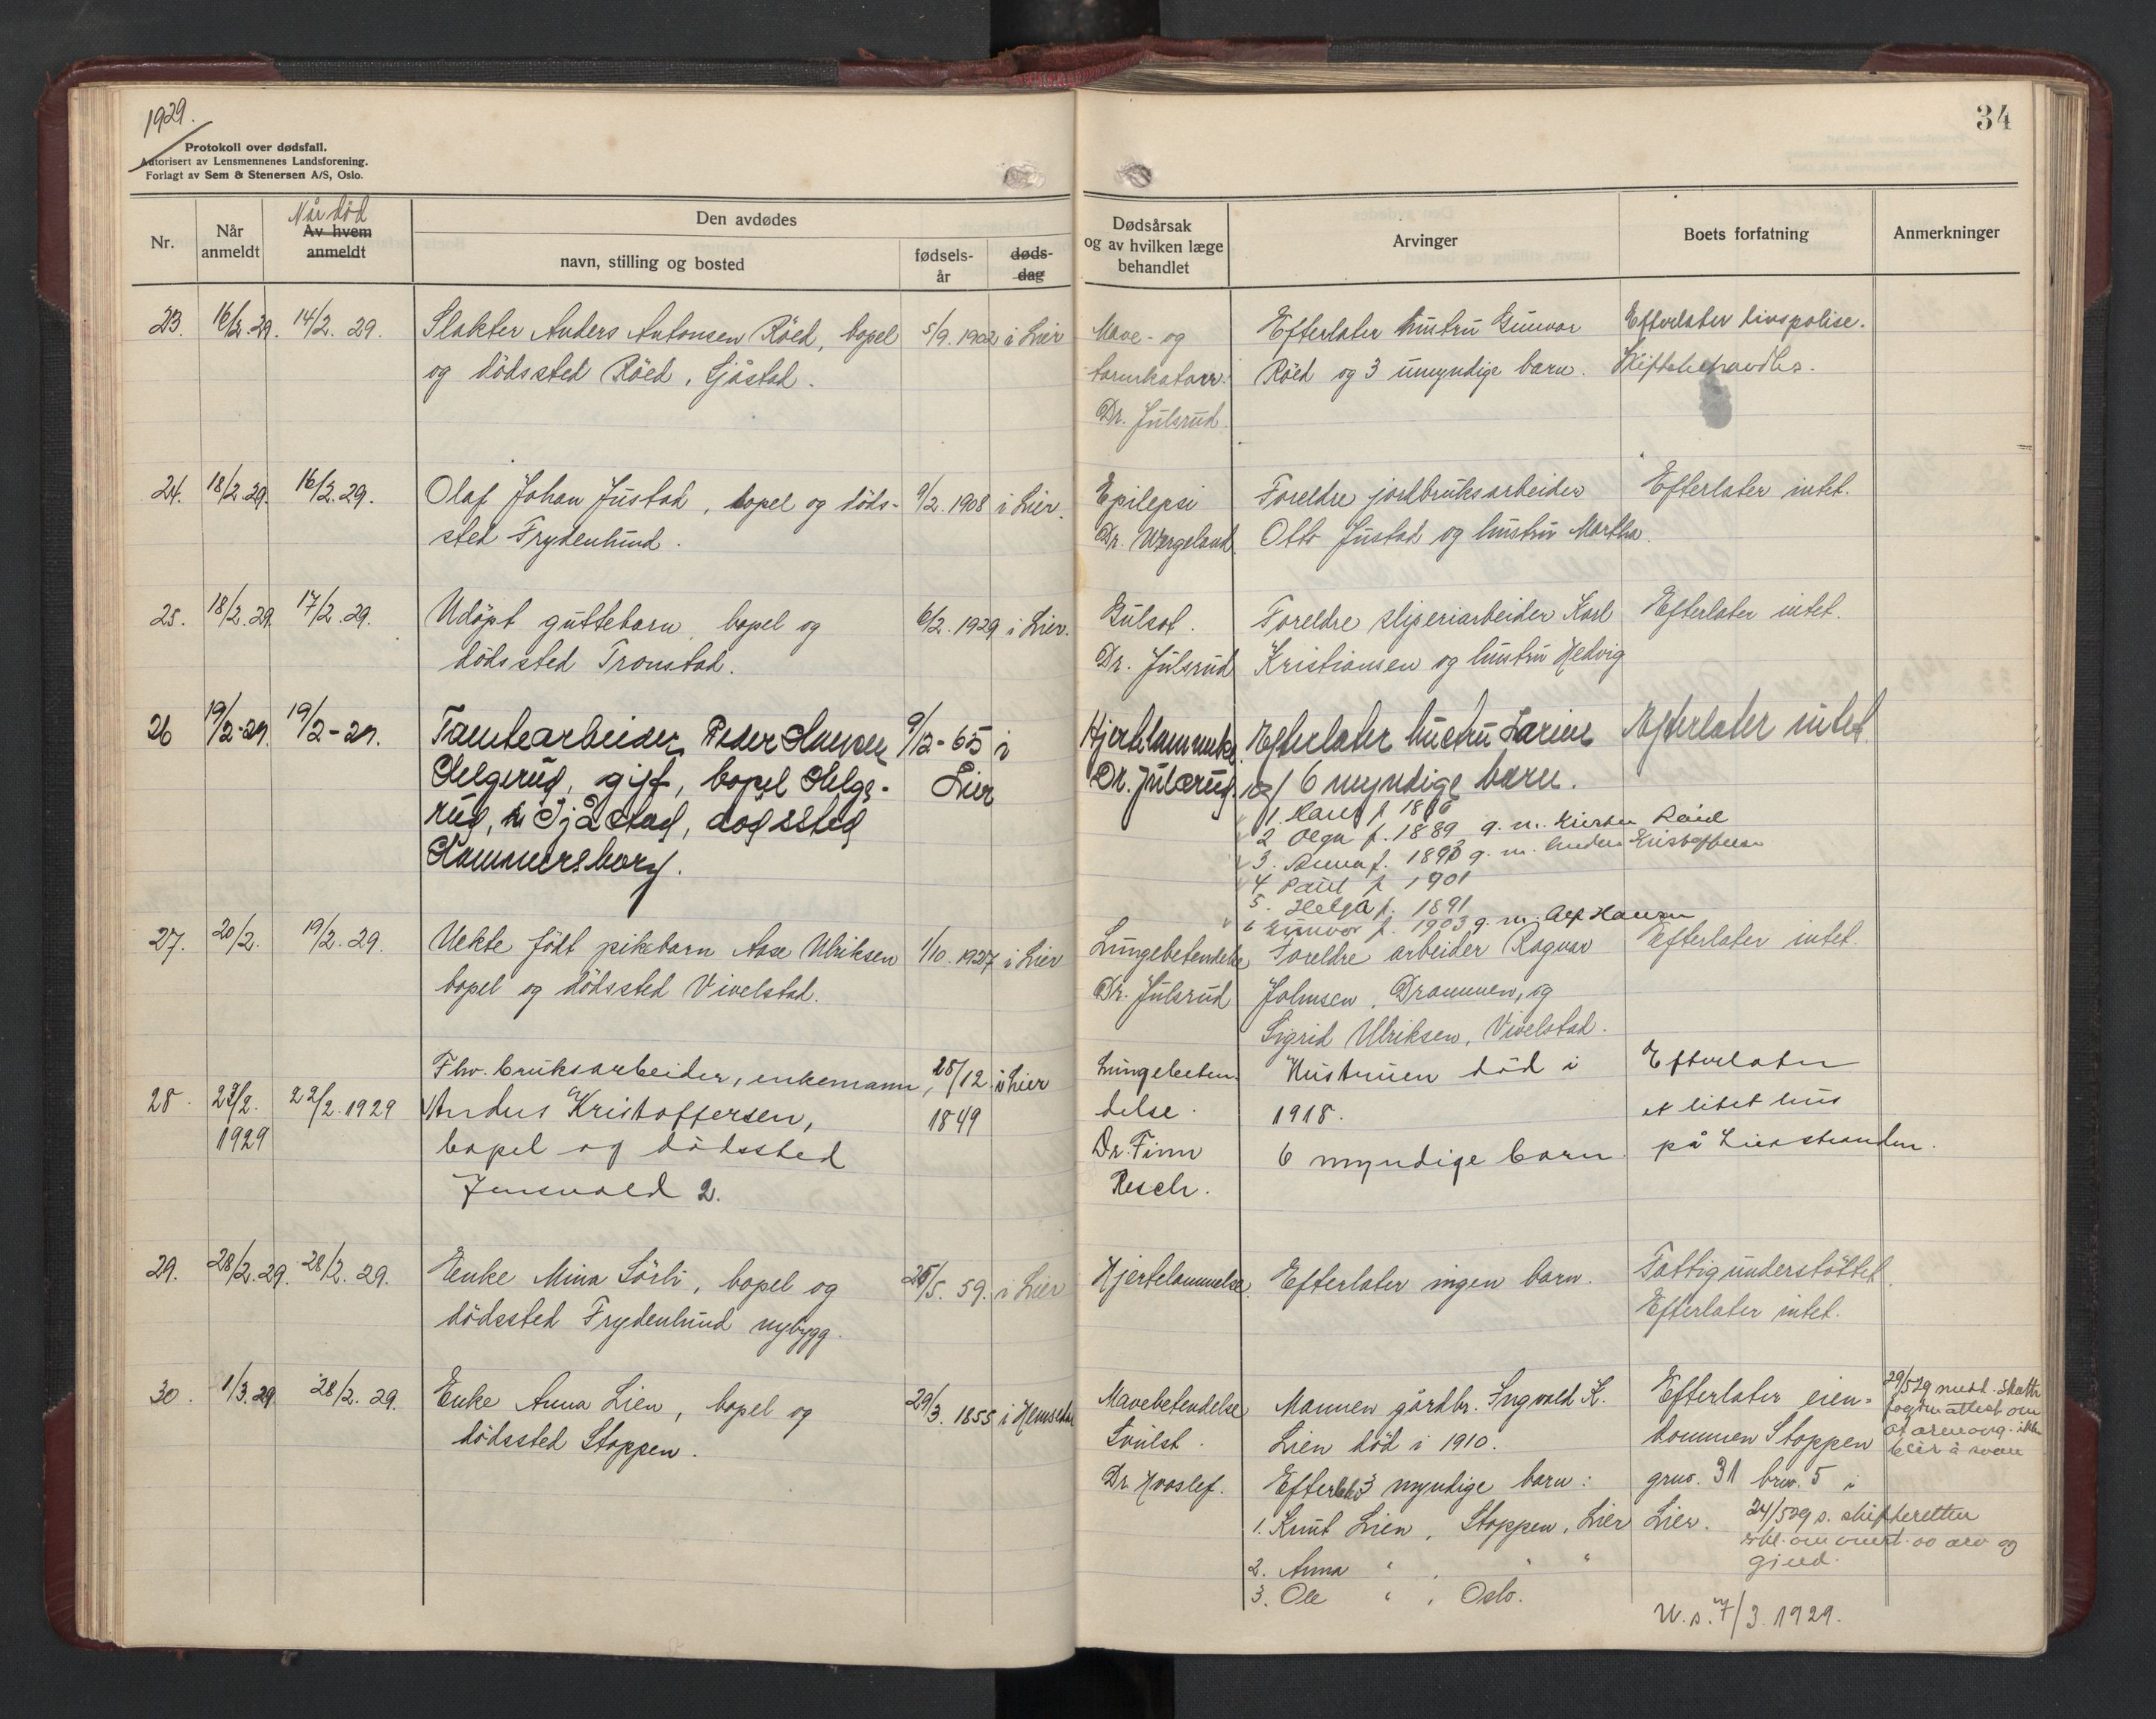 1929.
34
Protokoll over dødsfall.
Autorisert av Lensmennenes Landsforening.
Forlagt av Sem & Stenersen A/S, Oslo.
Nr.
Når
anmeldt
Når död
Av hvem
anmeldt
Den avdødes
navn, stilling og bosted
fødsels-
år
døds-
dag
Dødsårsak
og av hvilken læge
behandlet
Arvinger
Boets forfatning
Anmerkninger
23. 16/2.29. 14/2. 29. Slakter Anders Antonsen Röed, bopel 5/9. 1902 i Lier Mave- og Efterlater hustru Gunvor Efterlater livspolise.
og dödssted Röed, Sjåstad. tarmkatarr. Röed og 3 umyndige barn. Skiftebehandles.
Dr. Julsrud.
24. 18/2.29. 16/2.29. Olaf Johan Justad, bopel og döds- 9/2.1908 i Lier. Epilepsi Foreldre jordbruksarbeider Efterlater intet.
sted Frydenlund. Dr. Wergeland Otto Justad og hustru Martha.
25. 18/2.29. 17/2.29. Udöpt guttebarn, bopel og 6/2. 1929 i Lier. Gulsot. Foreldre sliperiarbeider Karl Efterlater intet.
dödssted Tronstad. Dr. Julsrud Kristiansen og hustru Hedvig
26 19/2-29. 19/2-29. Tomtearbeider Peder Hansen 9/2-65 i Hjertelammelse. Efterlater hustru Larine Efterlater intet.
Helgerud, gift, bopel Helge- Lier Dr. Julsrud. og 6 myndige barn.
rud, Sjåstad, dödssted
Hammersborg.
1.
2 Olga f. 1889 g. m.
3. Anna f. g. m. Anders Kristoffersen
4. Paul f. 1901
5. Helga f. 1891
6 Gunvor f. 1903 g. m. Alf Hansen
27. 20/2. 19/2.29. Uekte födt pikebarn Aase Ulriksen 1/10. 1927 i Lier Lungebetendelse Foreldre arbeider Ragnar Efterlater intet.
bopel og dödssted Vivelstad. Dr. Julsrud Johnsen, Drammen, og
Sigrid Ulriksen, Vivelstad.
Fhv. bruksarbeider, enkemann, 28/12. i Lier Lungebeten- Hustruen död i Efterlater
28. 23/2. 22/2.1929 Anders Kristoffersen, 1849 delse. 1918. et litet hus
1929 bopel og dödssted Dr. Finn 6 myndige barn. på Lierstranden.
Jensvold 2. Resch.
29. 28/2.29. 28/2. 29. Enke Mina Sörli, bopel og 26/5. 59. i Lier Hjertelammelse. Efterlater ingen barn. Fattigunderstöttet.
dödssted Frydenlund nybygg. Efterlater intet.
30. 1/3.29. 28/2.29. Enke Anna Lien, bopel og 29/3. 1855 i Hemsedal Mavebetendelse Mannen gårdbr. Ingvald K. Efterlater eien-
dödssted Stoppen. Svulst. Lien död i 1910. dommen Stoppen
Dr. Hvoslef. Efterlot 3 myndige barn: gnr. 31 brnr. 5 i
1. Knut Lien, Stoppen, Lier Lier.
2. Anna " , " "
3. Ole " , Oslo.
29/5 29 skatte
attest om
at arveavg. ikke
blir å svare
24/5 29 s. skifteretten
erkl. om arv og
gjeld.
U.s. 7/3.1929.